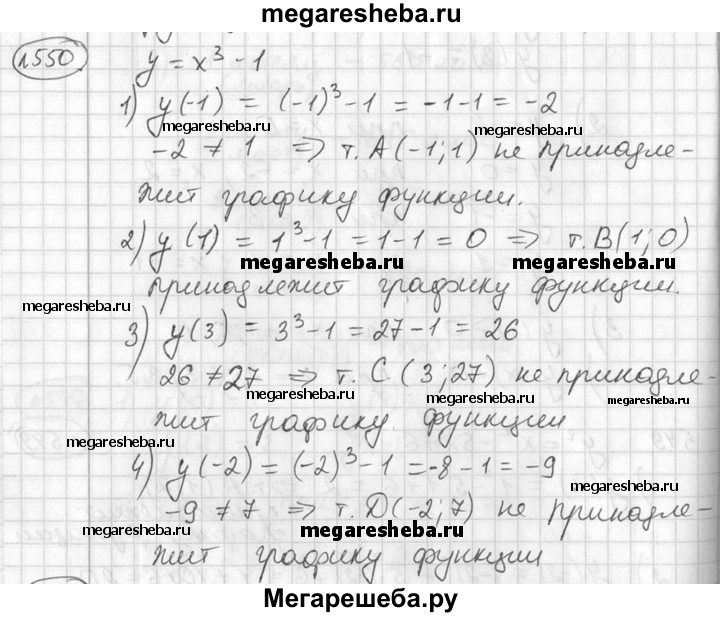 megaresheba.ru
№550 y = x³ - 1
1) y(-1) = (-1)³ - 1 = -1 - 1 = -2
megaresheba.ru megaresheba.ru
-2 ≠ 1 => т. А(-1; 1) не принадле-
жит графику функции.
2) y(1) = 1³ - 1 = 1 - 1 = 0 => т. В(1; 0)
megaresheba.ru megaresheba.ru
принадлежит графику функции.
megaresheba.ru
3) y(3) = 3³ - 1 = 27 - 1 = 26
26 ≠ 27 => т. С(3; 27) не принадле-
megaresheba.ru megaresheba.ru
жит графику функции
megaresheba.ru
4) y(-2) = (-2)³ - 1 = -8 - 1 = -9
megaresheba.ru
-9 ≠ 7 => т. D(-2; 7) не принадле-
megaresheba.ru megaresheba.ru megaresheba.ru
жит графику функции
Мегарешеба.ру